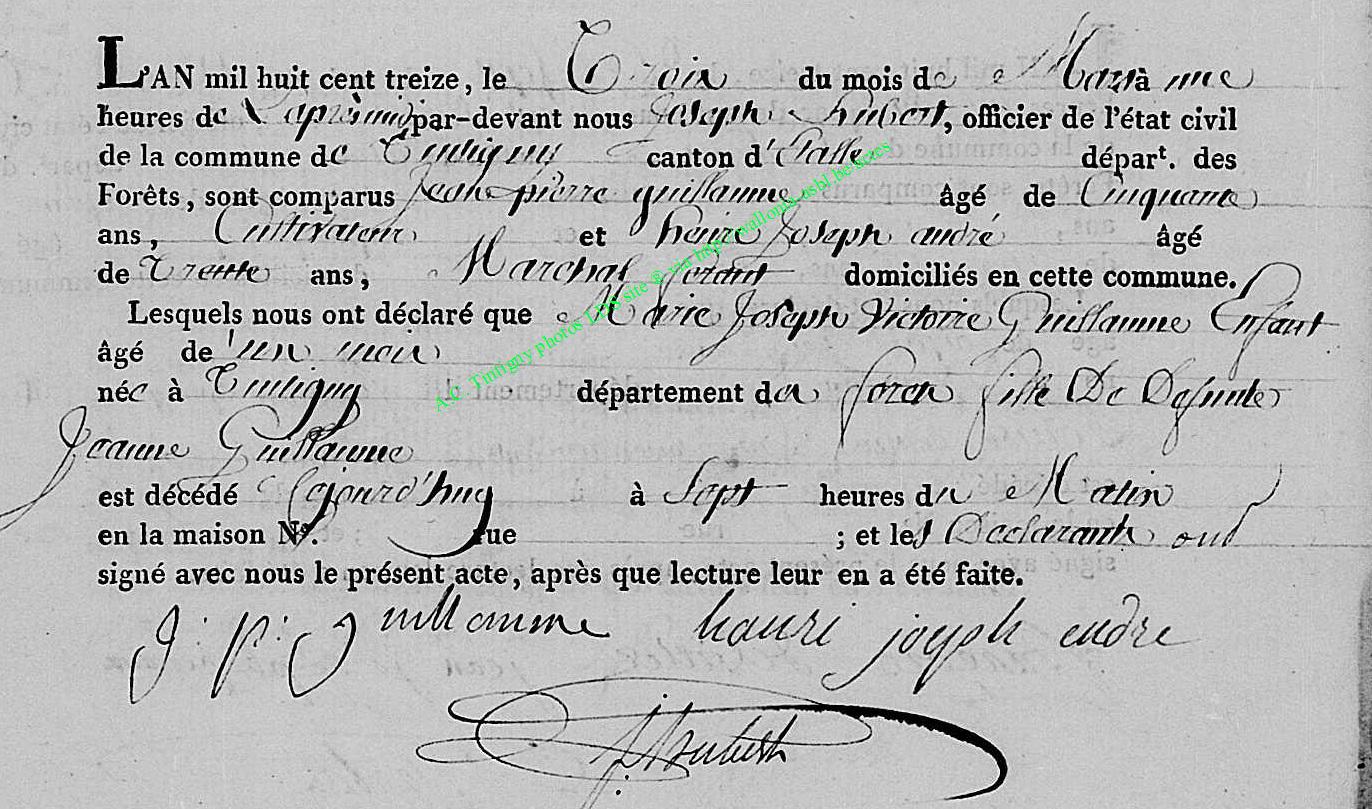 L'AN mil huit cent treize, le Trois du mois de Mars à une
heures de L'aprèsmidi par-devant nous Joseph hubert, officier de l'état civil
de la commune de Tintigny canton d'Etalle départ. des
Forêts, sont comparus Jean pierre guillaume âgé de Cinquante
ans, Cultivateur et henri Joseph andré âgé
de Trente ans, Marchal ferant domiciliés en cette commune.
Lesquels nous ont déclaré que Marie Joseph Victorie Guillaume Enfant
âgé de un mois
née à Tintigny département des foret fille De Defunte
Jeanne Guillaume
est décédé Ajourd'huy à Sept heures du Matin
en la maison N°. rue ; et les Declarants ont
signé avec nous le présent acte, après que lecture leur en a été faite.
J: p: guillaumme hanri joseph endre
J. hubert
A.C. Tintigny photos LDS site © via http://wallonia-asbl.be/actes